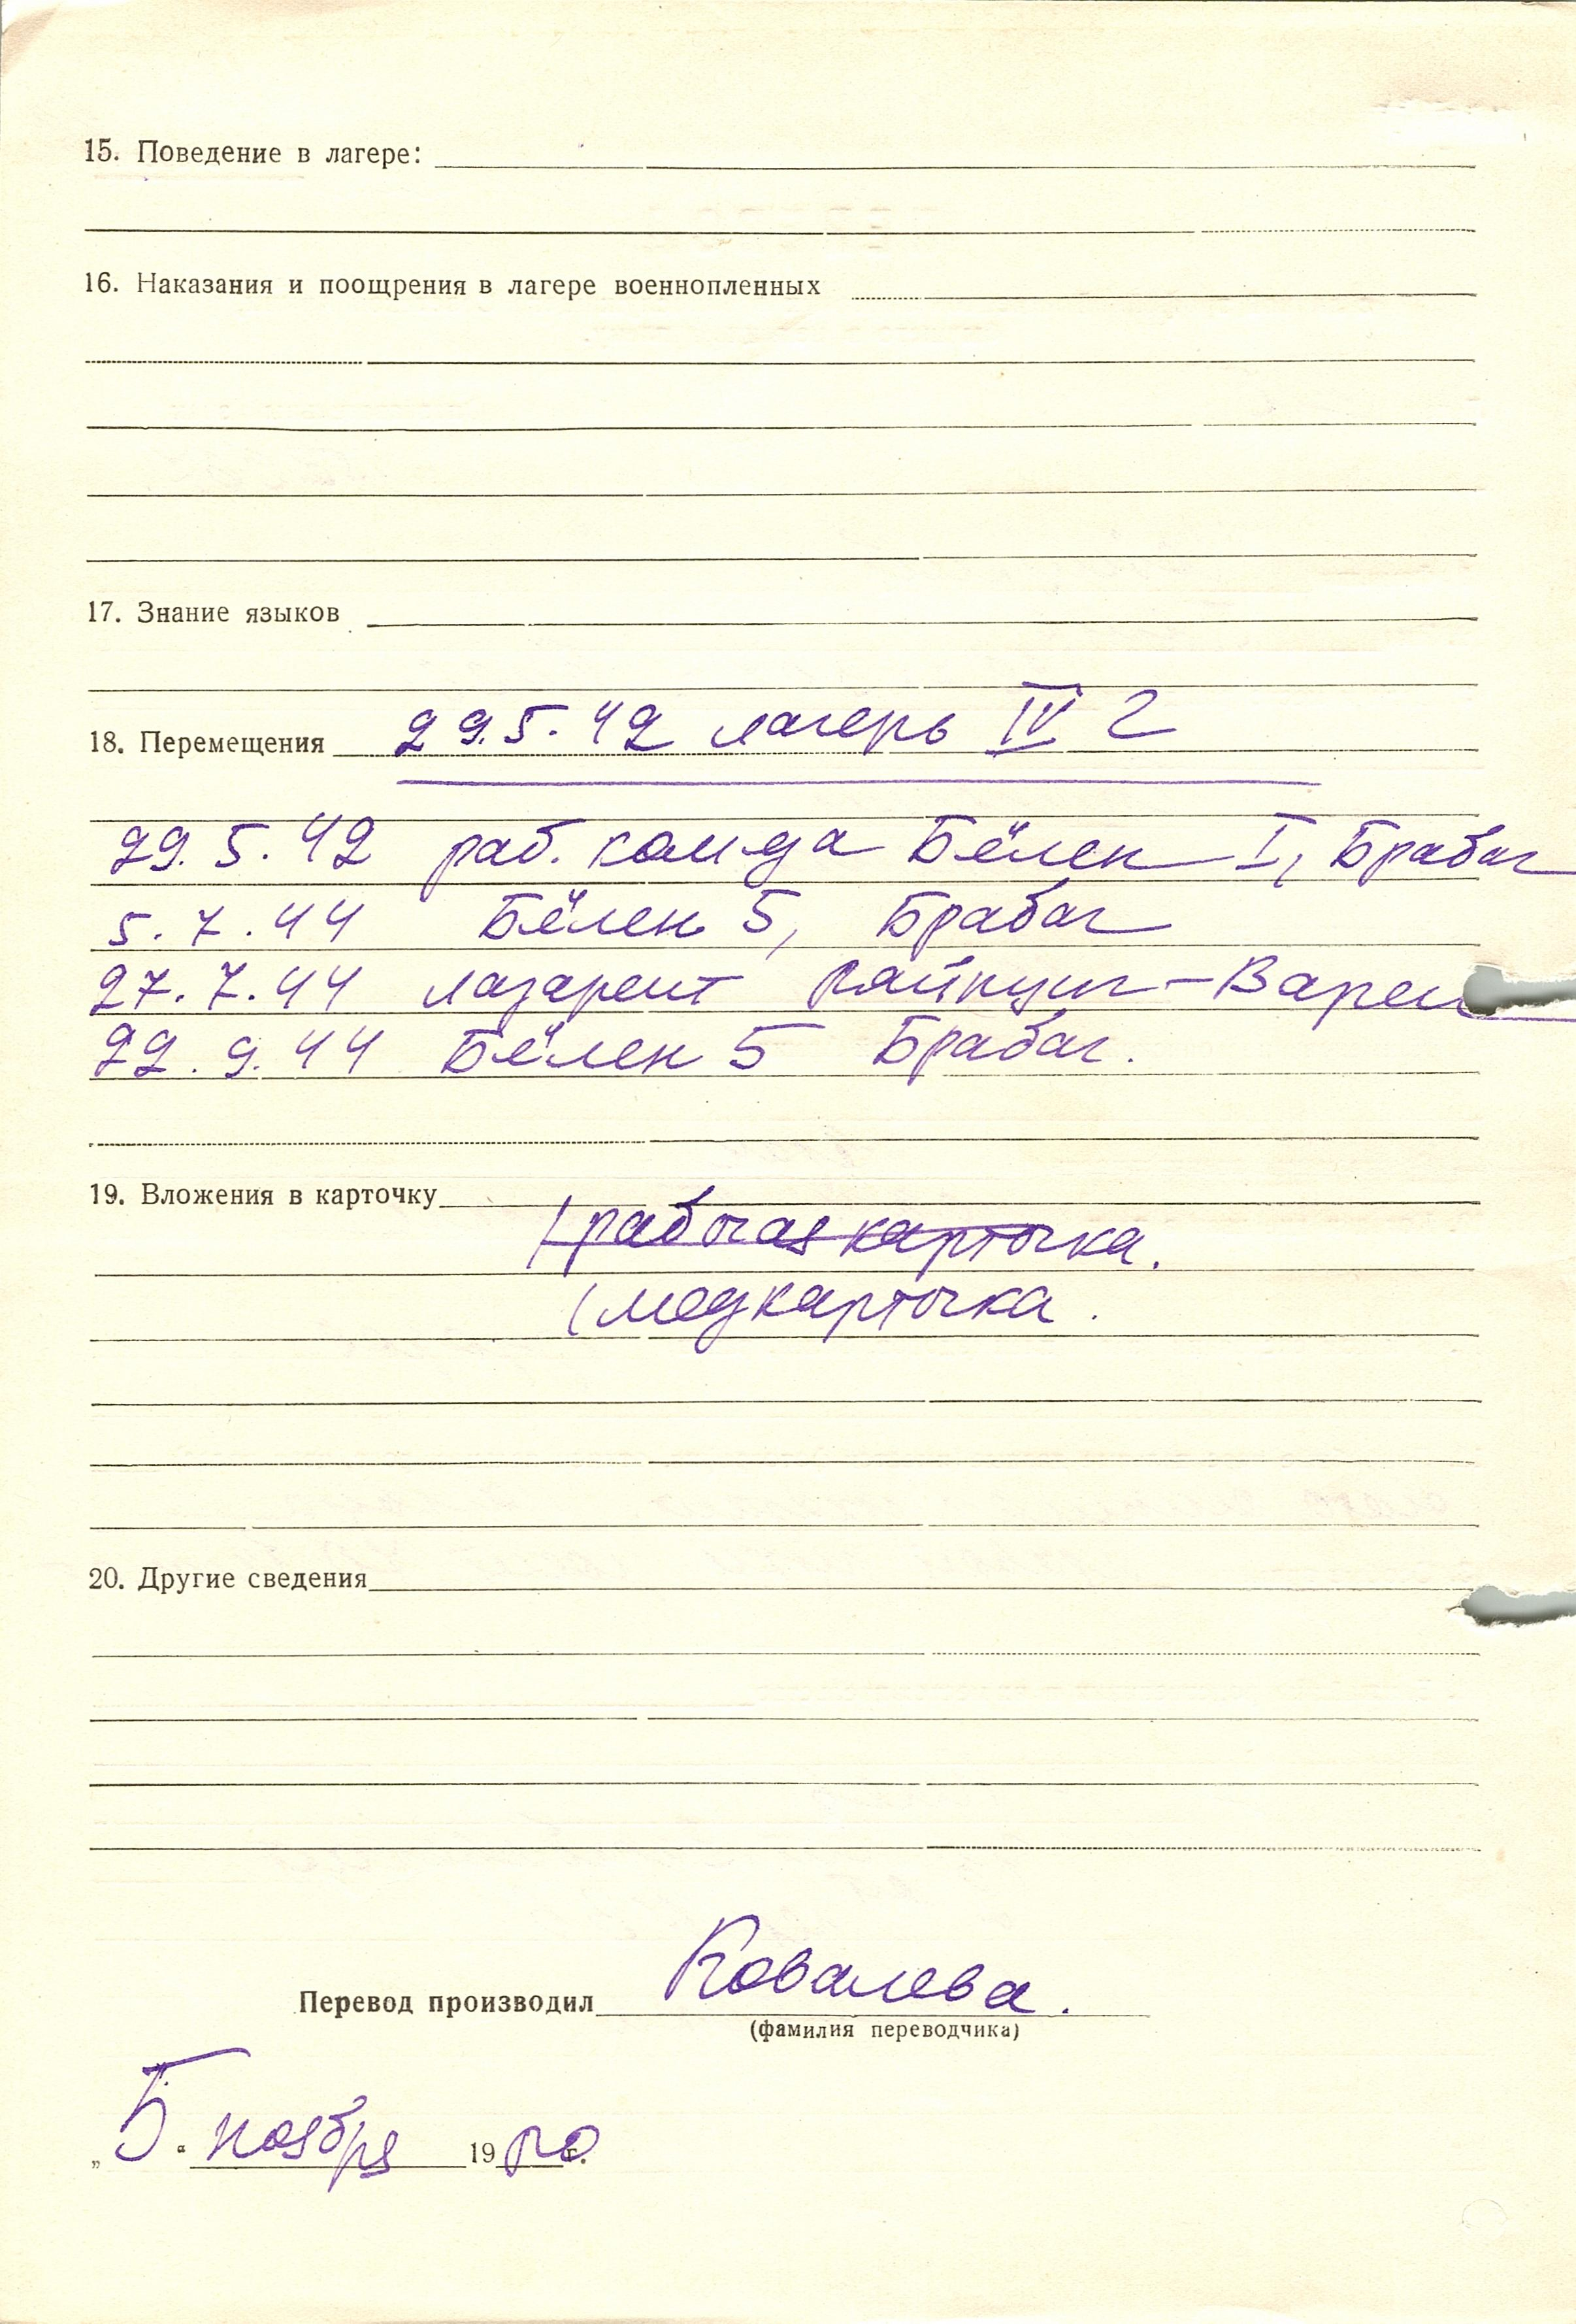 15. Поведение в лагере:
16. Наказания и поощрения в лагере военнопленных
17. Знание языков
18. Перемещения 29.5.42 лагерь IV Г
29.5.42 раб. комда Бёлен I, Брабаг
5.7.44 Бёлен 5, Брабаг
27.7.44 лазарет Лайпциг-Варен
22.9.44 Бёлен 5 Брабаг.
19. Вложения в карточку
рабочая карточка.
медкарточка.
20. Другие сведения
Перевод производил Ковалева.
(фамилия переводчика)
„5“ ноября 19 г.